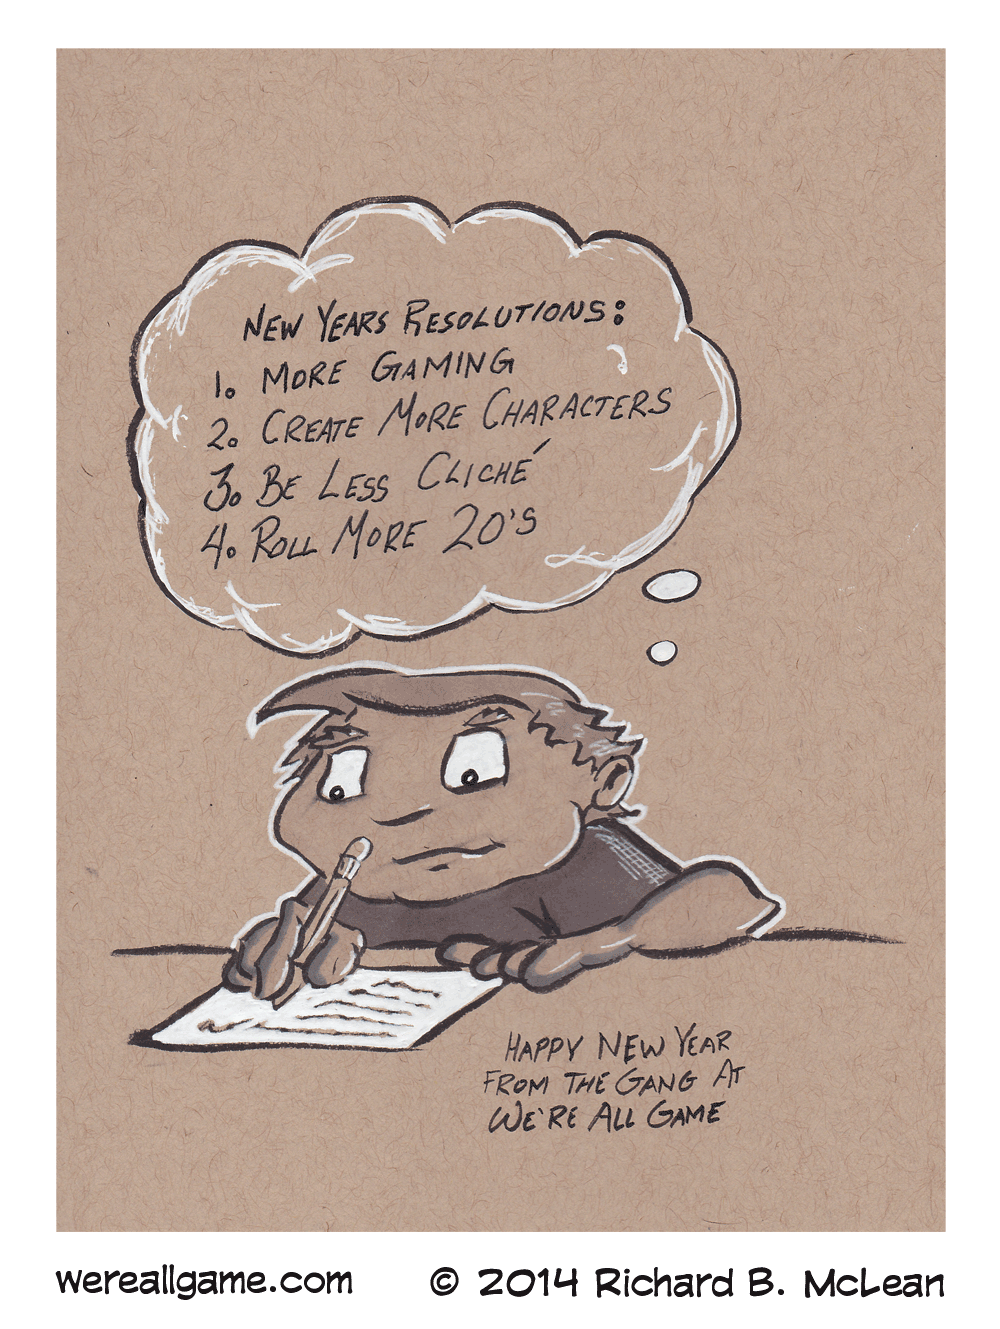 New Years Resolutions:
1. More Gaming
2. Create More Characters
3. Be Less Cliché
4. Roll More 20's
Happy New Year
From The Gang At
We're All Game
wereallgame.com © 2014 Richard B. McLean